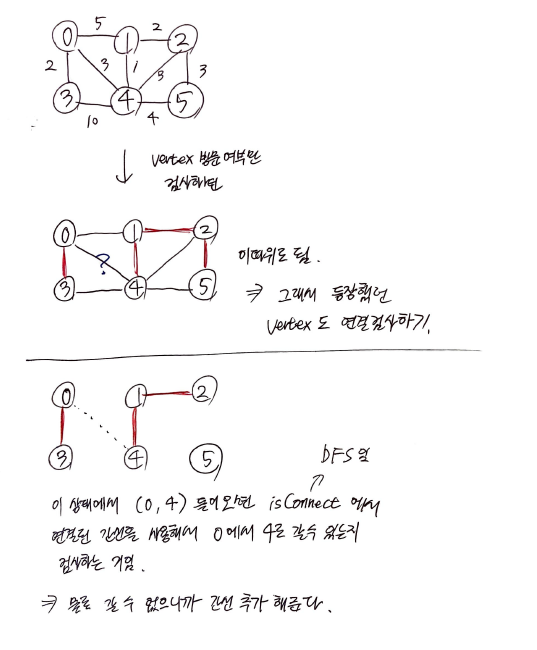 5 2
0 1 2
2 3 1 3 3
3 4 5
10 4
vertex 방문여부만
검사하면
0 1 2
?
3 4 5
이따위로 됨.
⇒ 그래서 등장했던
vertex도 연결검사하기.
0 1 2
3 4 5
DFS임
이 상태에서 (0,4) 들어오면 isConnect 에서
연결된 간선을 사용해서 0에서 4로 갈수 있는지
검사하는 거임.
⇒ 갈 수 없으니까 간선 추가 해준다.